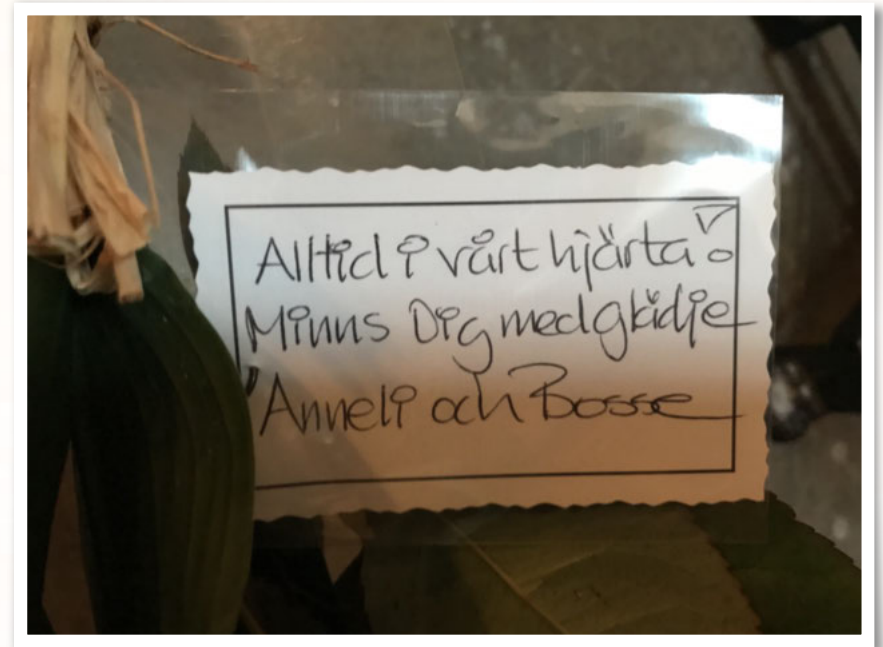 Alltid i vårt hjärta!
Minns Dig med glädje
Anneli och Bosse